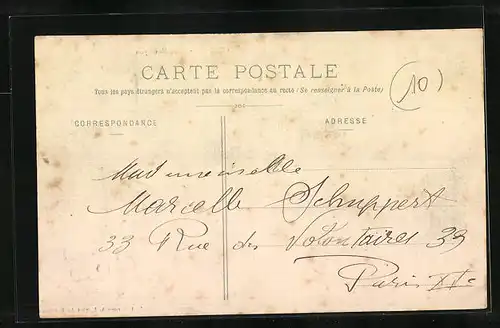 CARTE POSTALE
Tous les pays étrangers n'acceptent pas la correspondance au recto (Se renseigner à la Poste)
10
CORRESPONDANCE
ADRESSE
Mademoiselle
Marcelle Schuppert
33 Rue des Volontaires 33
Paris XVe